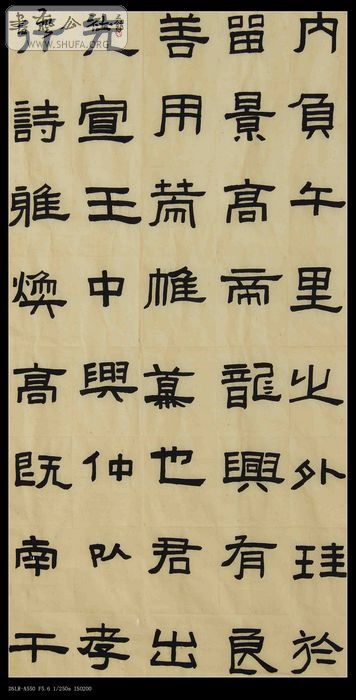 WWW.SHUFA.ORG
内負午里之外珪於
留景高帝龍興有良
善用帷幕也君出
先宣王中興仲以孝
行詩雅煥高既南干
DSLR-A550 F5.6 1/250s ISO200